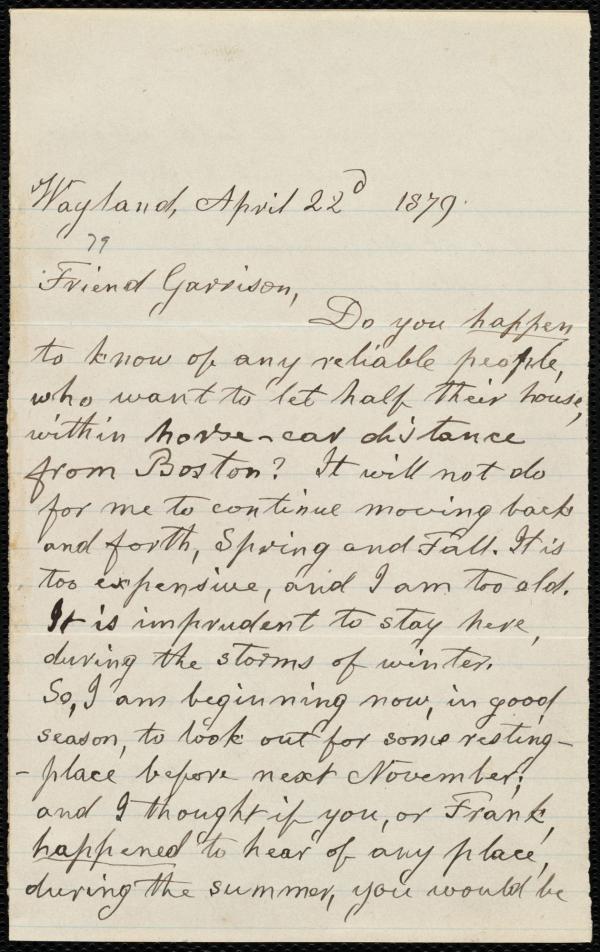 Wayland, April 22d 1879.
79
Friend Garrison,
Do you happen
to know of any reliable people,
who want to let half their house,
within horse-car distance
from Boston? It will not do
for me to continue moving back
and forth, Spring and Fall. It is
too expensive, and I am too old.
It is imprudent to stay here,
during the storms of winter.
So, I am beginning now, in good
season, to look out for some resting-
-place before next November;
and I thought if you, or Frank,
happened to hear of any place,
during the summer, you would be